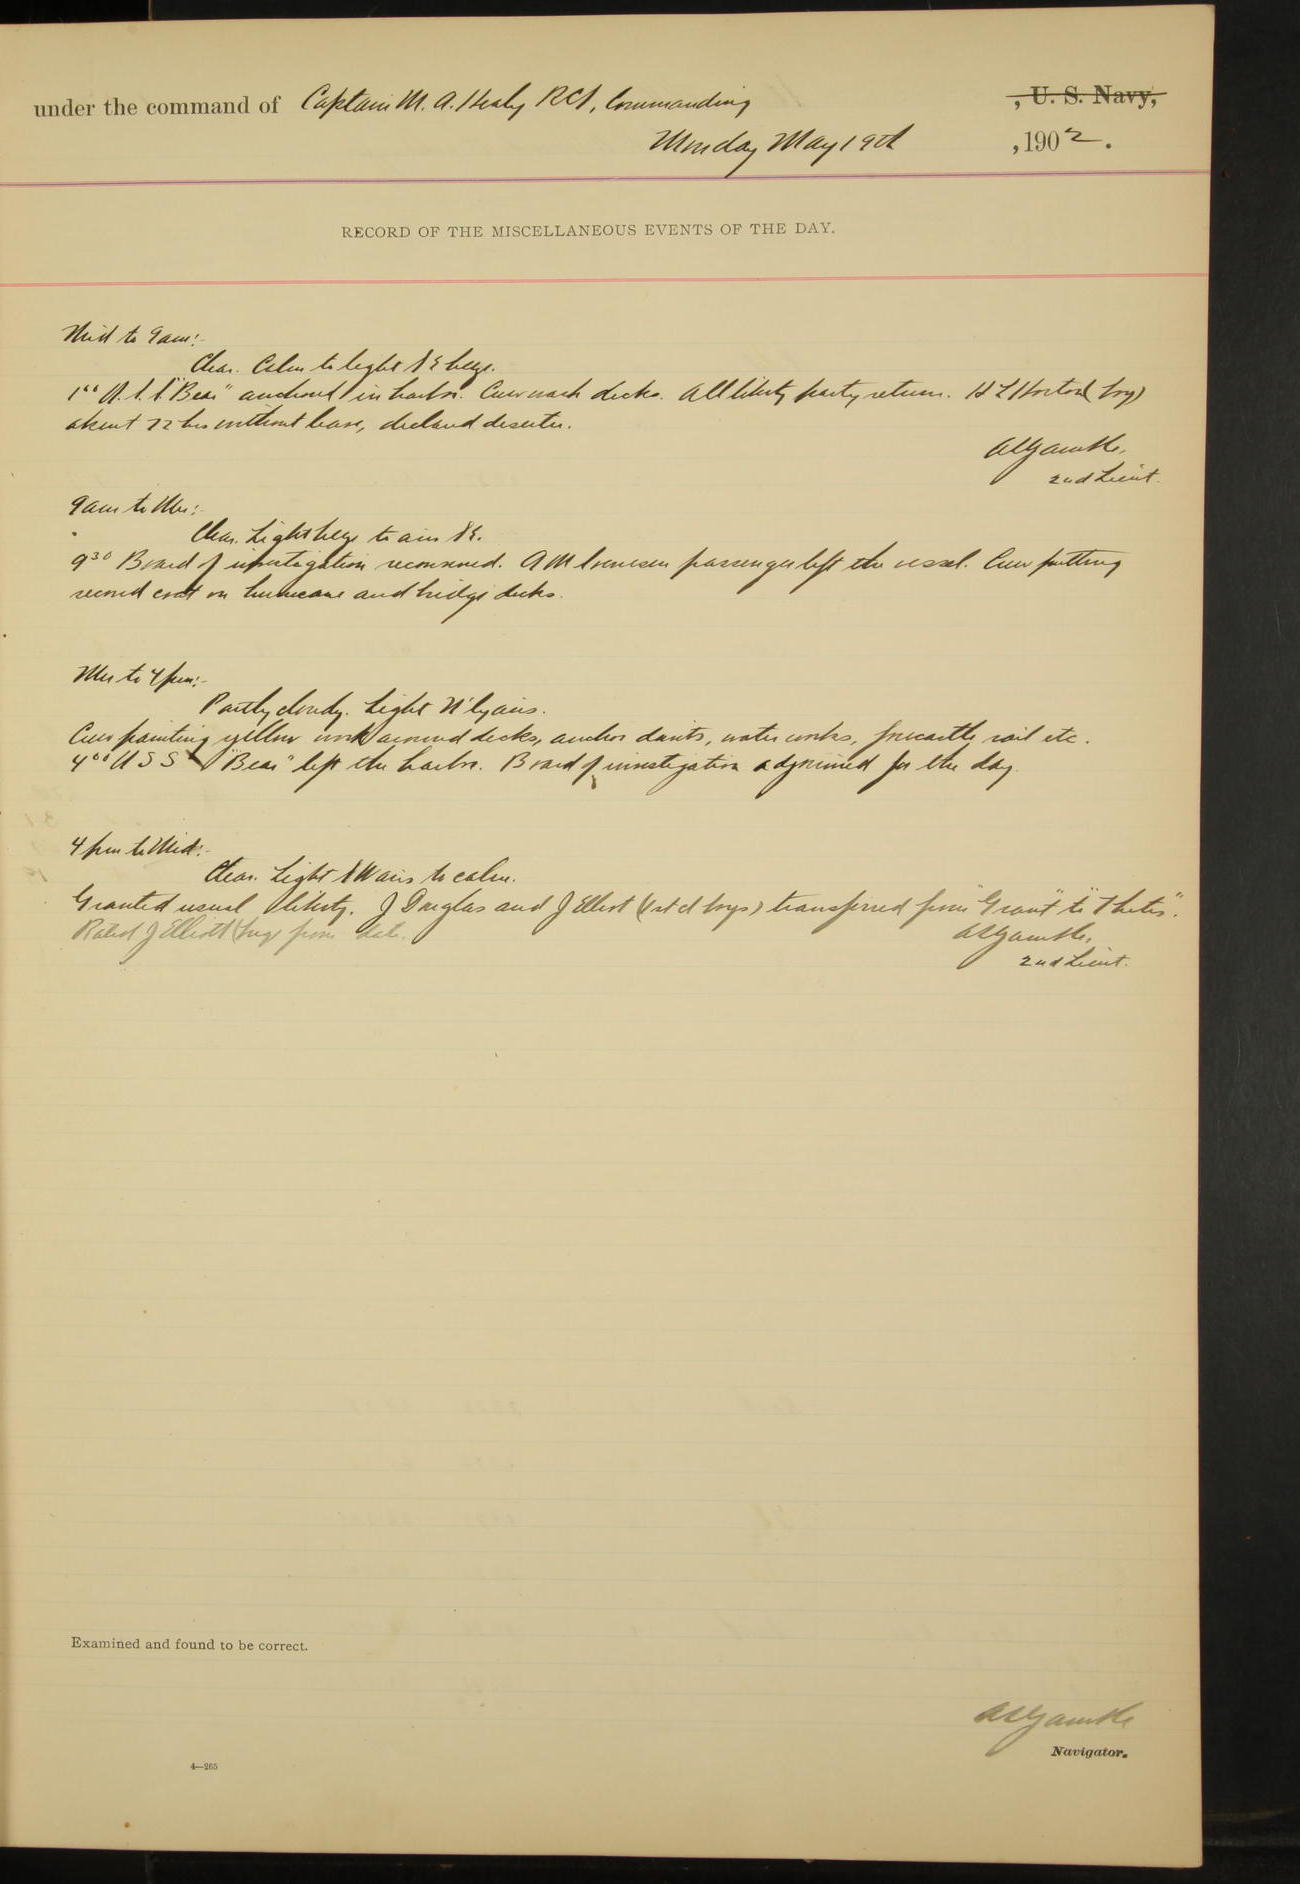 under the command of Captain M. A. Healy RCS, Commanding , U. S. Navy,
Monday May 19th , 1902 .
RECORD OF THE MISCELLANEOUS EVENTS OF THE DAY.
Mid to 9am:-
Clear. Calm to light SE breeze.
1⁰⁰ "Bear" anchored in harbor. Crew wash decks. All liberty party return. H L Horton (boy)
absent 72 hrs without leave, declared deserter.
2nd Lieut.
9am to Mer:-
Clear. Light breeze to airs SE.
9³⁰ Board of investigation reconvened. A M passenger left the vessel. Crew putting
second coat on hurricane and bridge decks.
Mer to 4pm:-
Partly cloudy. Light N'ly airs.
Crew painting yellow work around decks, anchor davits, water works, forecastle rail etc.
4⁰⁰ U S S "Bear" left the harbor. Board of investigation adjourned for the day.
4pm to Mid:-
Clear. Light SW airs to calm.
Granted usual liberty. J Douglas and J Elliott (1st cl boys) transferred from "Grant" to "Thetis".
Rated J Elliott (boy) from date.
2nd Lieut.
Examined and found to be correct.
Navigator.
4—265